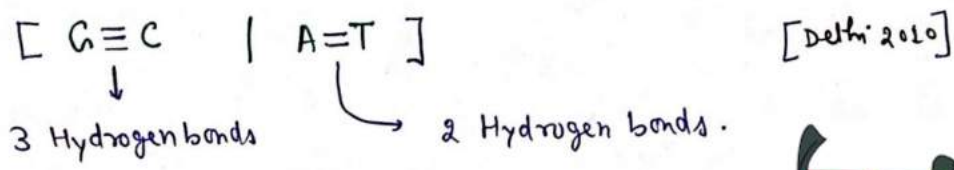 [ G≡C | A=T ] [Delhi 2010]
3 Hydrogen bonds 2 Hydrogen bonds.